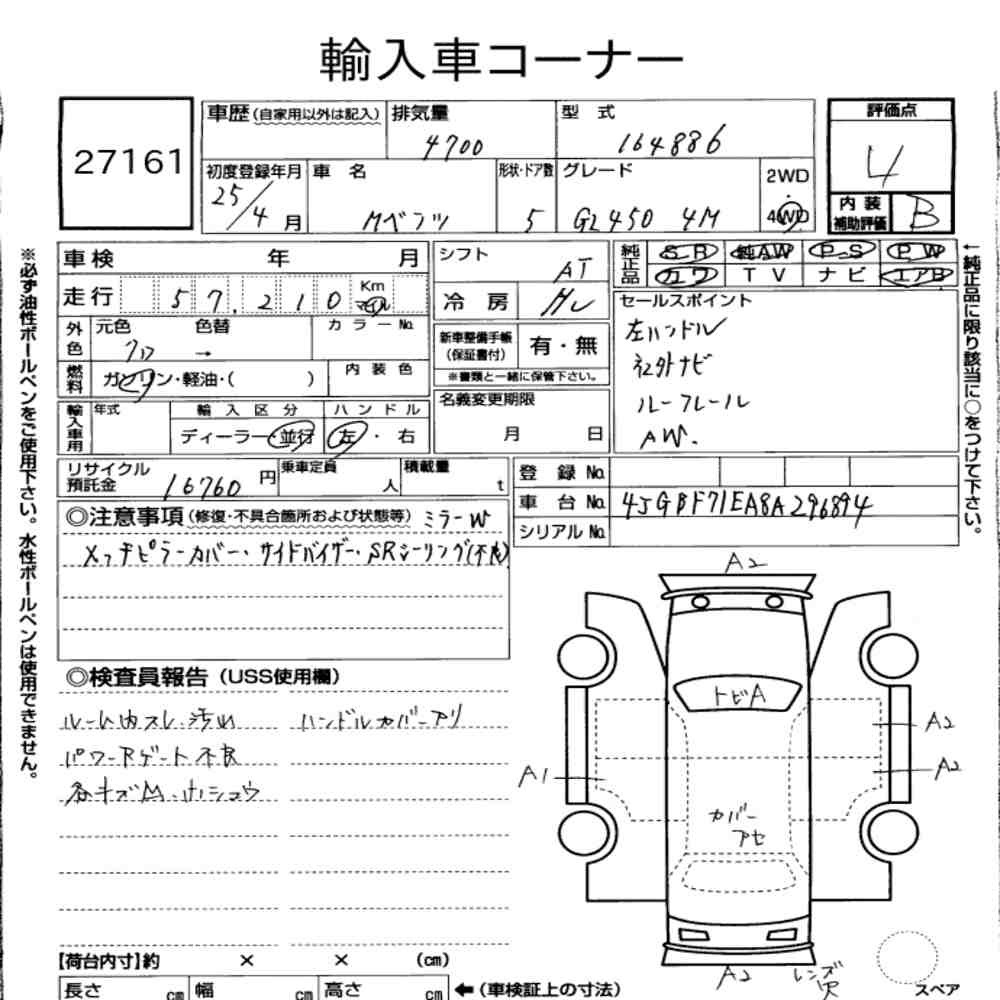 輸入車コーナー
27161
車歴 (自家用以外は記入) 排気量 型 式 評価点
4700 164886 4
初度登録年月 車 名 形状・ドア数 グレード 2WD・4WD
25/4月 Mベンツ 5 GL450 4M
内装補助評価 B
車検 年 月
シフト AT
純正品 SR 純AW PS PW
カワ TV ナビ エアB
走行 57,210 Km マイル
冷房
セールスポイント
左ハンドル
社外ナビ
ルーフレール
AW.
外色 元色 色替 カラーNo.
クロ →
新車整備手帳(保証書付) 有・無
※書類と一緒に保管下さい。
燃料 ガソリン・軽油・( ) 内装色
名義変更期限
月 日
輸入車用 年式 輸入区分 ハンドル
ディーラー・並行 左・右
リサイクル預託金 16760円 乗車定員 人 積載量 t
登録No.
車台No. 4JGBF71EA8A296894
シリアルNo.
◎注意事項(修復・不具合箇所および状態等) ミラーW
メッキピラーカバー・サイドバイザー・SRシーリング(不良)
※必ず油性ボールペンをご使用下さい。水性ボールペンは使用できません。
←純正品に限り該当に○をつけて下さい。
◎検査員報告(USS使用欄)
ルーム内スレ・汚れ ハンドルカバーアリ
パワーRゲート不良
各キズ凹・ホシュウ
A2
トビA
A2
A1
A2
カバーアセ
A2
レンズ穴
スペア
【荷台内寸】約 × × (cm)
長さ cm 幅 cm 高さ cm ←(車検証上の寸法)